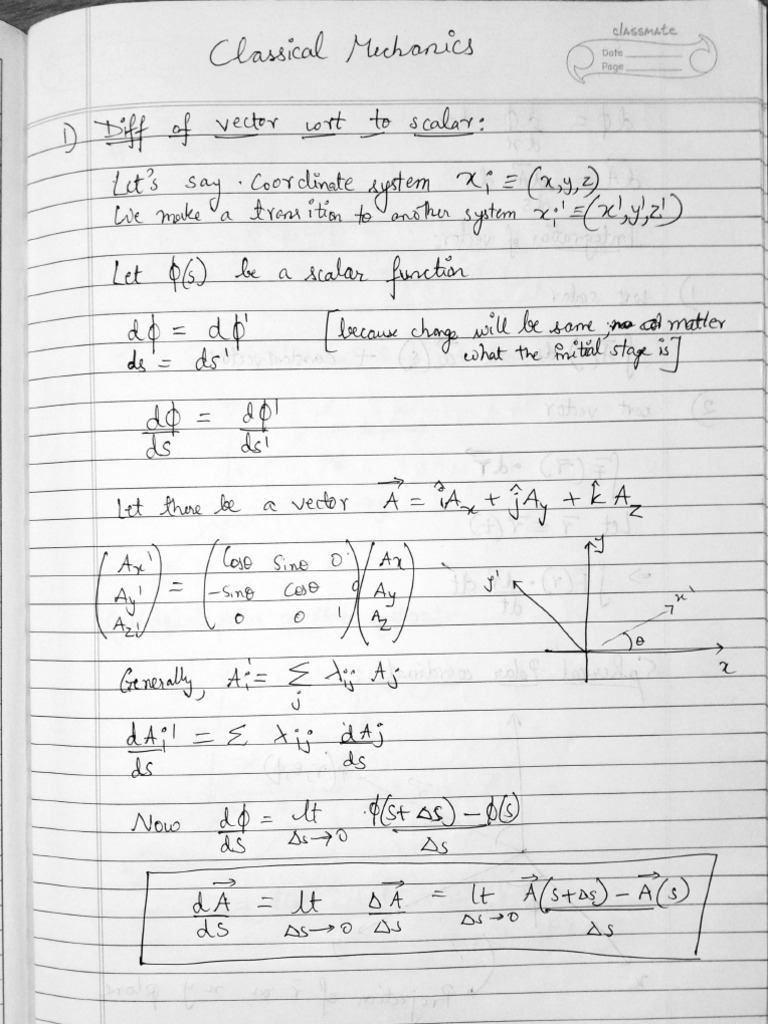 classmate
Date
Page
Classical Mechanics
1) Diff of vector wrt to scalar:
Let's say. Coordinate system xᵢ ≡ (x,y,z)
We make a transition to another system xᵢ' ≡ (x',y',z')
Let ϕ(s) be a scalar function
dϕ = dϕ' [because change will be same, no matter
ds = ds' what the initial stage is]
dϕ/ds = dϕ'/ds'
Let there be a vector A⃗ = îAₓ + ĵA_y + k̂ A_z
(Ax' Ay' Az') = (Cosθ Sinθ 0 -Sinθ Cosθ 0 0 0 1) (Ax Ay Az)
y
y'
x'
θ
x
Generally, Aᵢ' = Σ_j λᵢⱼ Aⱼ
dAᵢ'/ds = Σ λᵢⱼ dAⱼ/ds
Now dϕ/ds = lt Δs→0 ϕ(s+Δs) − ϕ(s)/Δs
dA⃗/ds = lt Δs→0 ΔA⃗/Δs = lt Δs→0 A⃗(s+Δs) − A⃗(s)/Δs